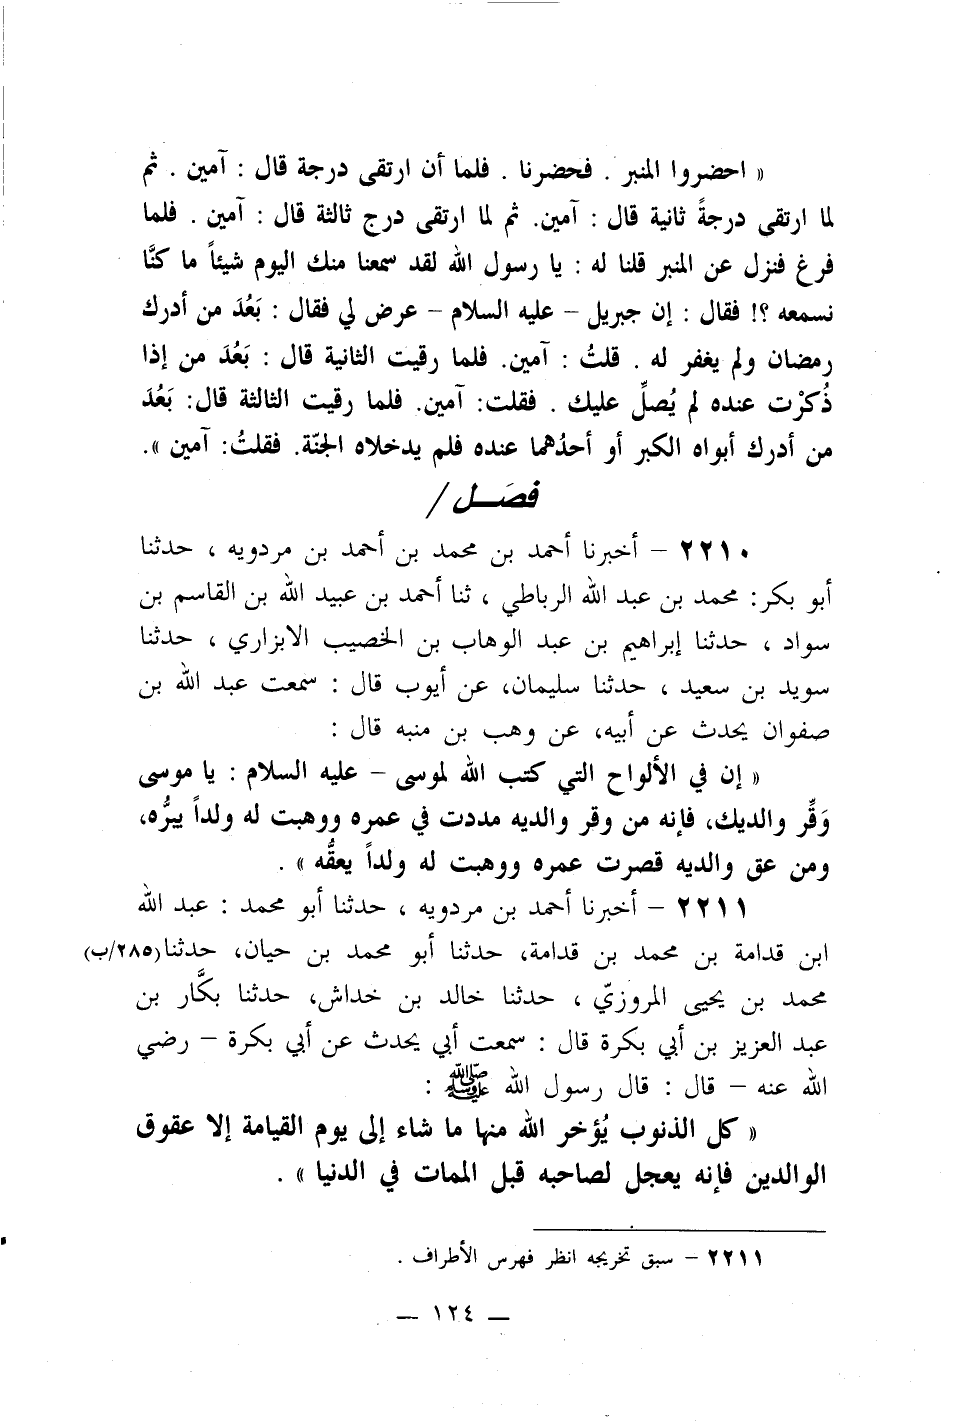 « احضروا المنبر . فحضرنا . فلما أن ارتقى درجة قال : آمين . ثم
لما ارتقى درجةً ثانية قال : آمين. ثم لما ارتقى درج ثالثة قال : آمين . فلما
فرغ فنزل عن المنبر قلنا له : يا رسول الله لقد سمعنا منك اليوم شيئاً ما كنَّا
نسمعه ؟! فقال : إن جبريل – عليه السلام – عرض لي فقال : بَعُدَ من أدرك
رمضان ولم يغفر له . قلتُ : آمين. فلما رقيت الثانية قال : بَعُدَ من إذا
ذُكرْت عنده لم يُصلِّ عليك . فقلت: آمين. فلما رقيت الثالثة قال: بَعُدَ
من أدرك أبواه الكبر أو أحدُهما عنده فلم يدخلاه الجنّة. فقلتُ: آمين ».
فصَــل /
٢٢١٠ – أخبرنا أحمد بن محمد بن أحمد بن مردويه ، حدثنا
أبو بكر: محمد بن عبد الله الرباطي ، ثنا أحمد بن عبيد الله بن القاسم بن
سواد ، حدثنا إبراهيم بن عبد الوهاب بن الخصيب الابزاري ، حدثنا
سويد بن سعيد ، حدثنا سليمان، عن أيوب قال : سمعت عبد الله بن
صفوان يحدث عن أبيه، عن وهب بن منبه قال :
« إن في الألواح التي كتب الله لموسى – عليه السلام : يا موسى
وَقِّر والديك، فإنه من وقر والديه مددت في عمره ووهبت له ولداً يبرُّه،
ومن عق والديه قصرت عمره ووهبت له ولداً يعقُّه » .
٢٢١١ – أخبرنا أحمد بن مردويه ، حدثنا أبو محمد : عبد الله
ابن قدامة بن محمد بن قدامة، حدثنا أبو محمد بن حيان، حدثنا (٢٨٥/ب)
محمد بن يحيى المروزيّ ، حدثنا خالد بن خداش، حدثنا بكَّار بن
عبد العزيز بن أبي بكرة قال : سمعت أبي يحدث عن أبي بكرة – رضي
الله عنه – قال : قال رسول الله ﷺ :
« كل الذنوب يُؤخر الله منها ما شاء إلى يوم القيامة إلا عقوق
الوالدين فإنه يعجل لصاحبه قبل الممات في الدنيا » .
٢٢١١ – سبق تخريجه انظر فهرس الأطراف .
– ١٢٤ –